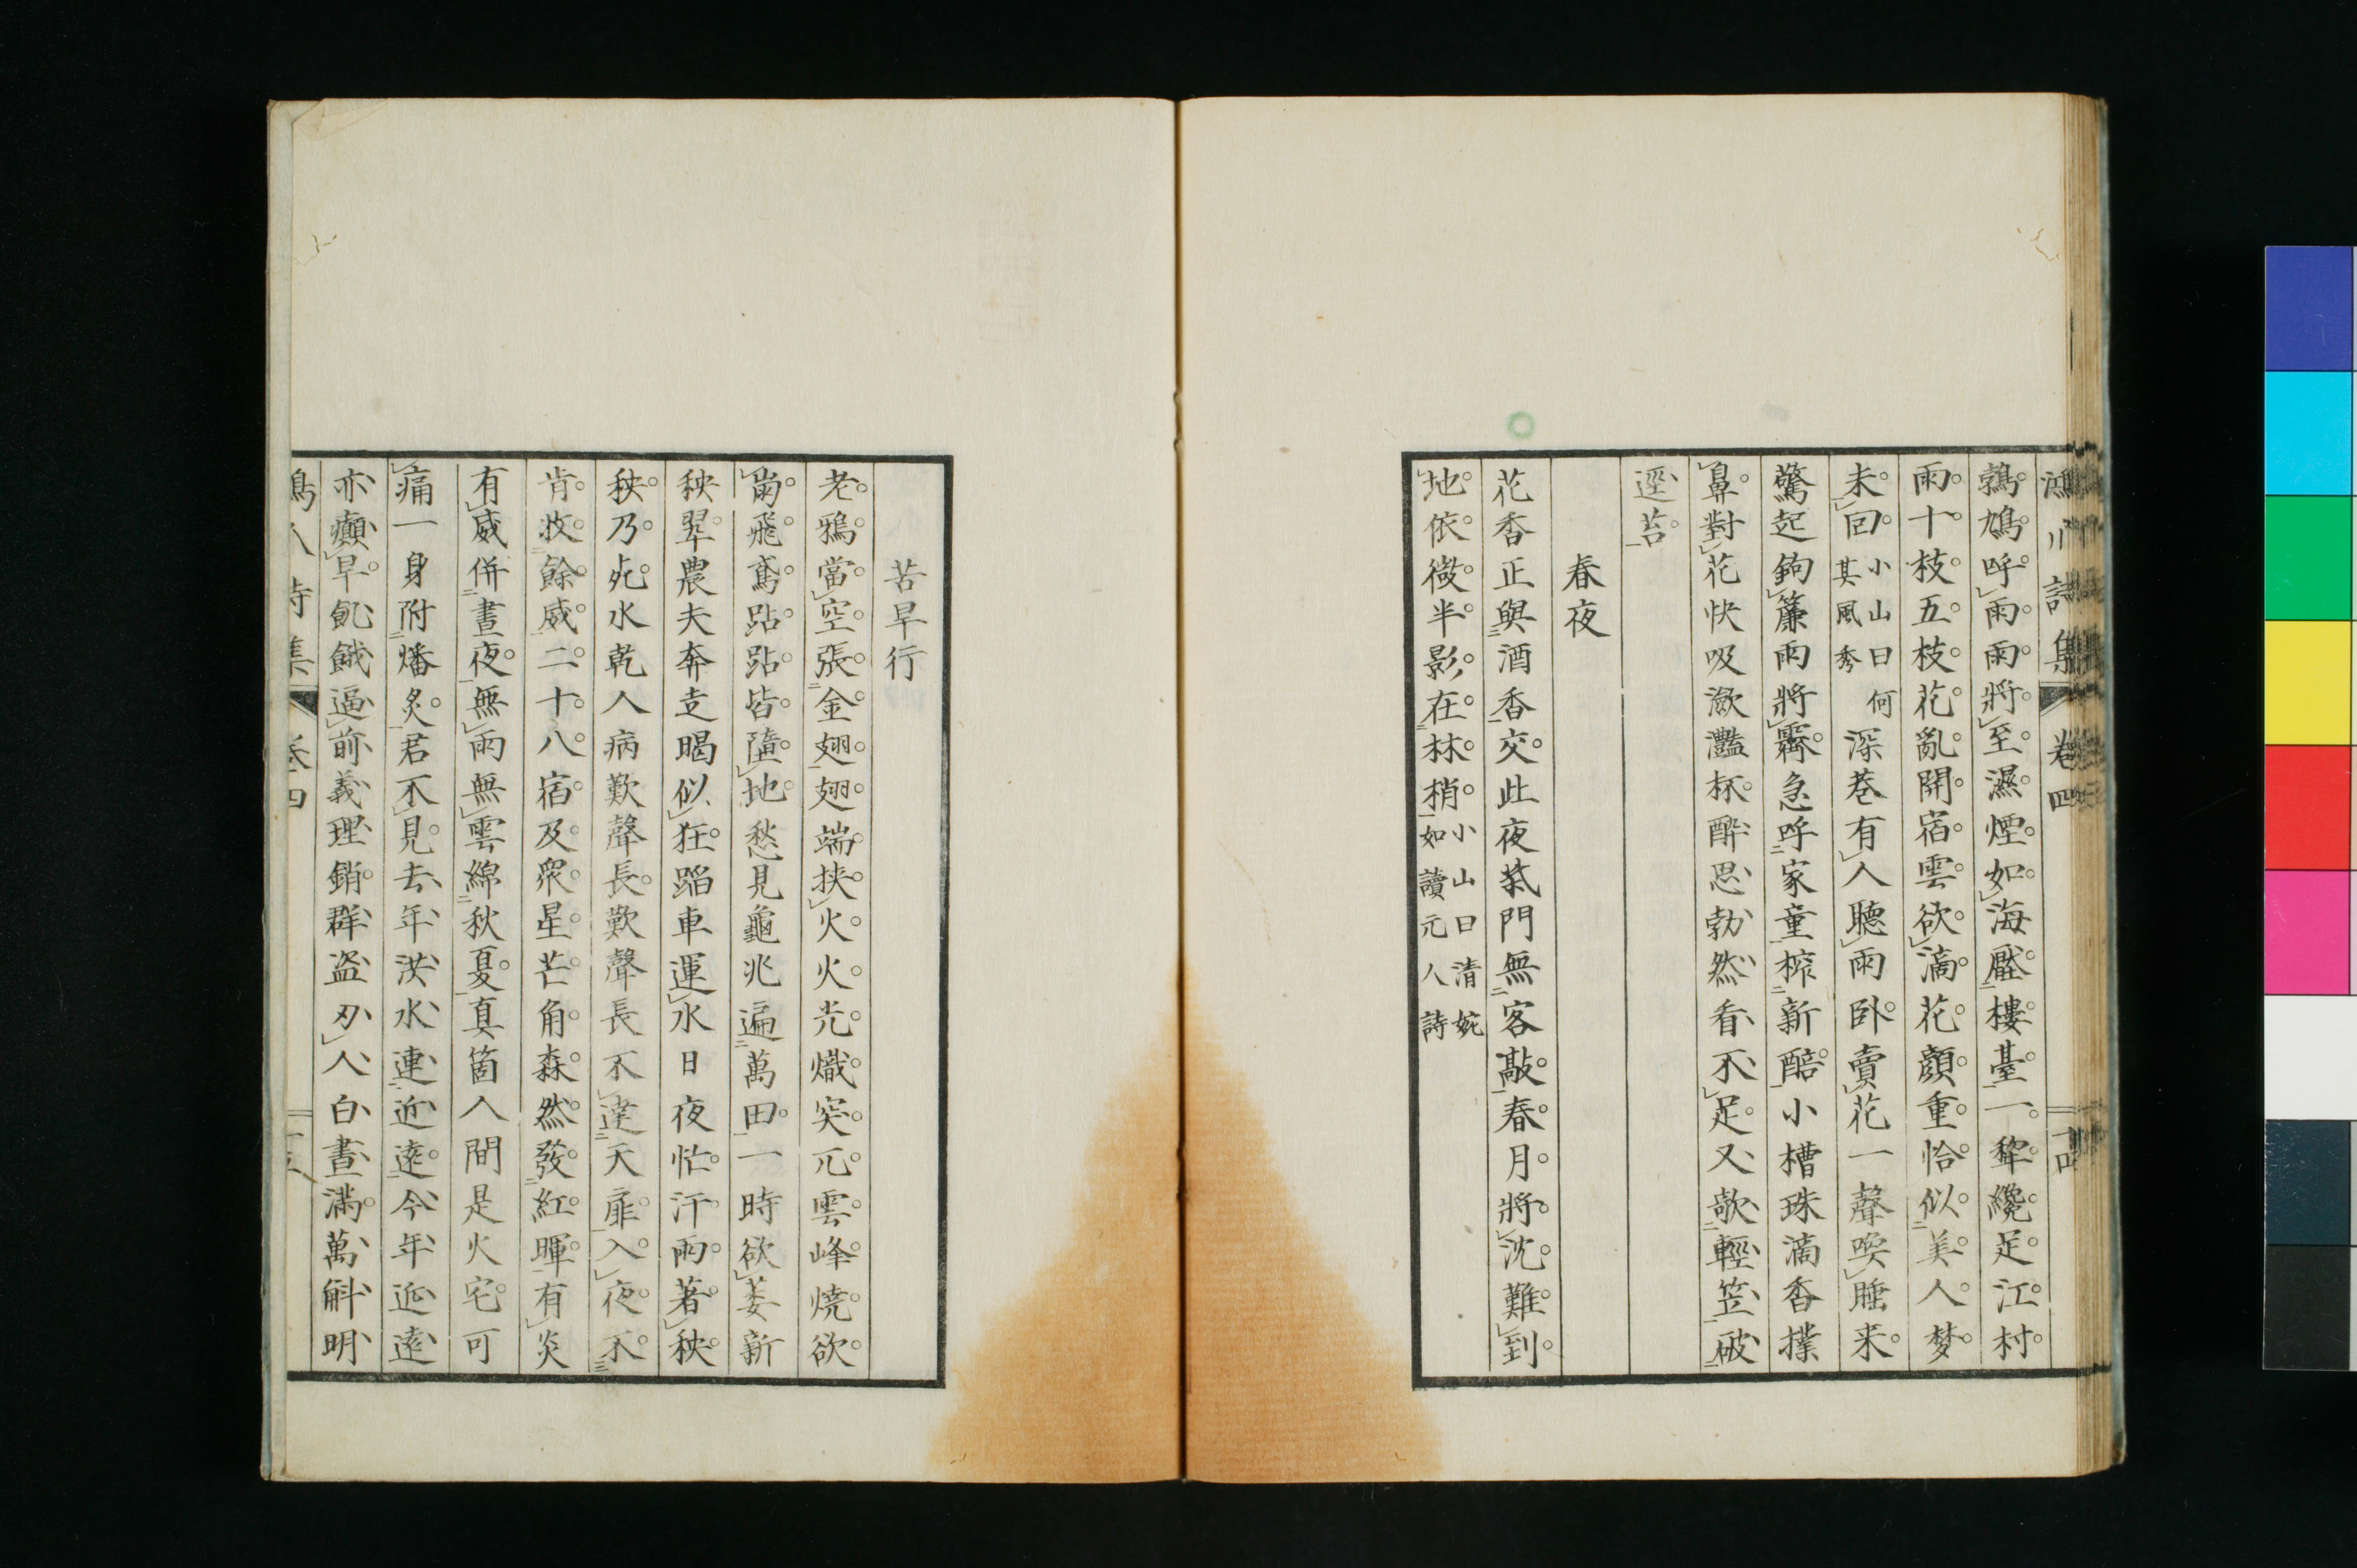 鴻川詩集　卷四　十四
鵓鳩呼雨雨將至濕煙如海壓樓臺一犂纔足江村
雨十枝五枝花亂開宿雲欲滴花顏重恰似美人梦
未回小山曰何其風秀深巷有人聽雨臥賣花一聲喚睡来
驚起鉤簾雨將霽急呼家童榨新醅小槽珠滴香撲
鼻對花快吸瀲灩杯酔思勃然看不足又欹輕笠破
逕苔
春夜
花香正與酒香交此夜柴門無客敲春月將沈難到
地依微半影在林梢小山曰清婉如讀元人詩
苦旱行
老鴉當空張金翅翅端挟火火光熾突兀雲峰焼欲
崩飛鳶跕跕皆墮地愁見龜兆遍萬田一時欲萎新
秧翠農夫奔走暍似狂蹈車運水日夜忙汗雨著秧
秧乃死水乾人病歎聲長歎聲長不達天扉入夜不
肯收餘威二十八宿及衆星芒角森然發紅暉有炎
有威併晝夜無雨無雲綿秋夏真箇人間是火宅可
痛一身附燔炙君不見去年洪水連近遠今年近遠
亦癲旱飢餓逼前義理銷群盗刃人白晝滿萬斛明
卷四